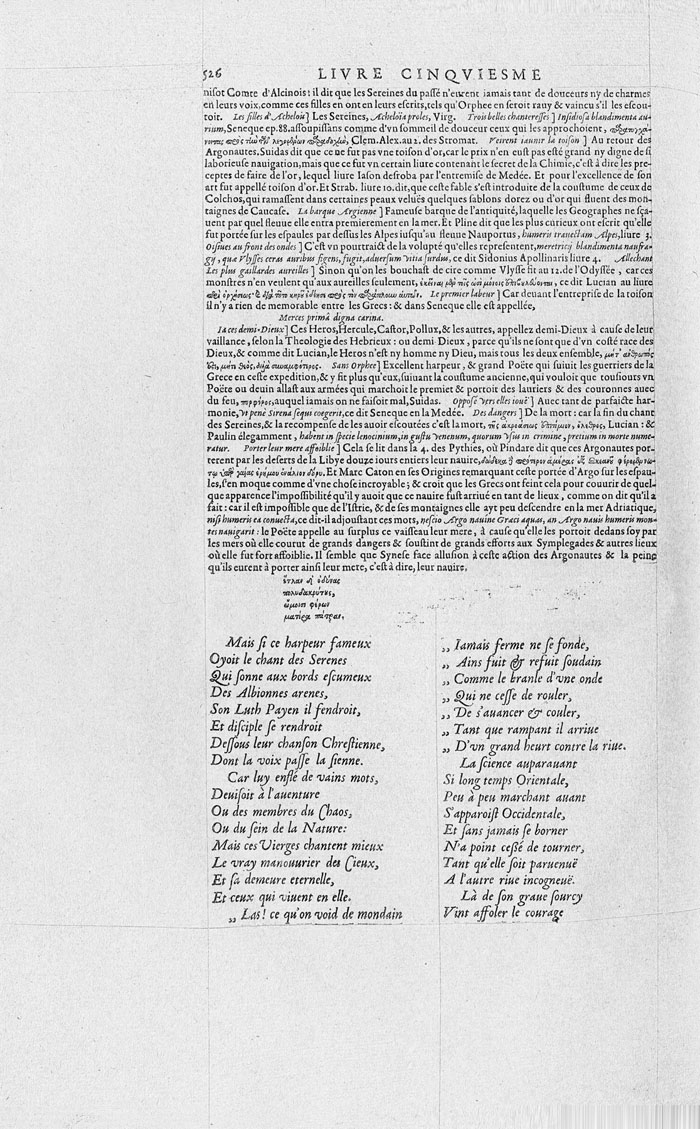 526
LIVRE CINQVIESME
nisot Comte d'Alcinois: il dit que les Sereines du passé n'eurent iamais tant de douceurs ny de charmes
en leurs voix, comme ces filles en ont en leurs escrits, tels qu'Orphee en seroit rauy & vaincu s'il les escou-
toit. Les filles d'Acheloü] Les Sereines, Acheloïa proles, Virg. Trois belles chanteresses] Insidiosa blandimenta au-
rium, Seneque ep. 88. assoupissans comme d'vn sommeil de douceur ceux qui les approchoient,
Clem. Alex. au 2. des Stromat. Peurent iaunir la toison] Au retour des
Argonautes. Suidas dit que ce ne fut pas vne toison d'or, car le prix n'en eust pas esté grand ny digne de si
laborieuse nauigation, mais que ce fut vn certain liure contenant le secret de la Chimie, c'est à dire les pre-
ceptes de faire de l'or, lequel liure Iason desroba par l'entremise de Medée. Et pour l'excellence de son
art fut appellé toison d'or. Et Strab. liure 10. dit, que ceste fable s'est introduite de la coustume de ceux de
Colchos, qui ramassent dans certaines peaux veluës quelques sablons dorez ou d'or qui fluent des mon-
taignes de Caucase. La barque Argienne] Fameuse barque de l'antiquité, laquelle les Geographes ne sça-
uent par quel fleuue elle entra premierement en la mer. Et Pline dit que les plus curieux ont escrit qu'elle
fut portée sur les espaules par dessus les Alpes iusqu'au fleuue Nauportus, humeris trauectam Alpes, liure 3.
Oisiues au front des ondes] C'est vn pourtraict de la volupté qu'elles representent, meretricij blandimenta naufra-
gij, qua Vlysses ceras auribus figens, fugit, aduersum vitia surdus, ce dit Sidonius Apollinaris liure 4. Allechant
Les plus gaillardes aureilles] Sinon qu'on les bouchast de cire comme Vlysse fit au 12. de l'Odyssée, car ces
monstres n'en veulent qu'aux aureilles seulement, ce dit Lucian au liure
Le premier labeur] Car deuant l'entreprise de la toison
il n'y a rien de memorable entre les Grecs: & dans Seneque elle est appellée,
Merces primâ digna carina.
Ia ces demi-Dieux] Ces Heros, Hercule, Castor, Pollux, & les autres, appellez demi-Dieux à cause de leur
vaillance, selon la Theologie des Hebrieux: ou demi Dieux, parce qu'ils ne sont que d'vn costé race des
Dieux, & comme dit Lucian, le Heros n'est ny homme ny Dieu, mais tous les deux ensemble,
Sans Orphee] Excellent harpeur, & grand Poëte qui suiuit les guerriers de la
Grece en ceste expedition, & y fit plus qu'eux, suiuant la coustume ancienne, qui vouloit que tousiours vn
Poëte ou deuin allast aux armées qui marchoit le premiet & portoit des lauriers & des couronnes auec
du feu, auquel iamais on ne faisoit mal, Suidas. Opposé vers elles iouë] Auec tant de parfaicte har-
monie, vt penè Sirena sequi coegerit, ce dit Seneque en la Medée. Des dangers] De la mort: car la fin du chant
des Sereines, & la recompense de les auoir escoutées c'est la mort, Lucian: &
Paulin élegamment, habent in specie lenocinium, in gustu venenum, quorum vsus in crimine, pretium in morte nume-
ratur. Porter leur mere affoiblie] Cela se lit dans la 4. des Pythies, où Pindare dit que ces Argonautes por-
terent par les deserts de la Libye douze iours entiers leur nauire,
Et Marc Caton en ses Origines remarquant ceste portée d'Argo sur les espau-
les, s'en moque comme d'vne chose incroyable; & croit que les Grecs ont feint cela pour couurir de quel-
que apparence l'impossibilité qu'il y auoit que ce nauire fust arriué en tant de lieux, comme on dit qu'il a
fait: car il est impossible que de l'Istrie, & de ses montaignes elle ayt peu descendre en la mer Adriatique,
nisi humeris ea conuecta, ce dit-il adjoustant ces mots, nescio Argo nauine Graci aquas, an Argo nauis humeris mon-
tes nauigarit: le Poëte appelle au surplus ce vaisseau leur mere, à cause qu'elle les portoit dedans soy par
les mers où elle courut de grands dangers & soustint de grands efforts aux Symplegades & autres lieux
où elle fut fort affoiblie. Il semble que Synese face allusion à ceste action des Argonautes & la peine
qu'ils eurent à porter ainsi leur mere, c'est à dire, leur nauire,
πολυδακρύτους,
ὤμοισι φέρων
ματέρα πάτραν.
Mais si ce harpeur fameux
Oyoit le chant des Serenes
Qui sonne aux bords escumeux
Des Albionnes arenes,
Son Luth Payen il fendroit,
Et disciple se rendroit
Dessous leur chanson Chrestienne,
Dont la voix passe la sienne.
Car luy enflé de vains mots,
Deuisoit à l'auenture
Ou des membres du Chaos,
Ou du sein de la Nature:
Mais ces Vierges chantent mieux
Le vray manouurier des Cieux,
Et sa demeure eternelle,
Et ceux qui viuent en elle.
„ Las! ce qu'on void de mondain
„ Iamais ferme ne se fonde,
„ Ains fuit & refuit soudain
„ Comme le branle d'vne onde
„ Qui ne cesse de rouler,
„ De s'auancer & couler,
„ Tant que rampant il arriue
„ D'vn grand heurt contre la riue.
La science auparauant
Si long temps Orientale,
Peu à peu marchant auant
S'apparoist Occidentale,
Et sans jamais se borner
N'a point cessé de tourner,
Tant qu'elle soit paruenuë
A l'autre riue incogneuë.
Là de son graue sourcy
Vint affoler le courage